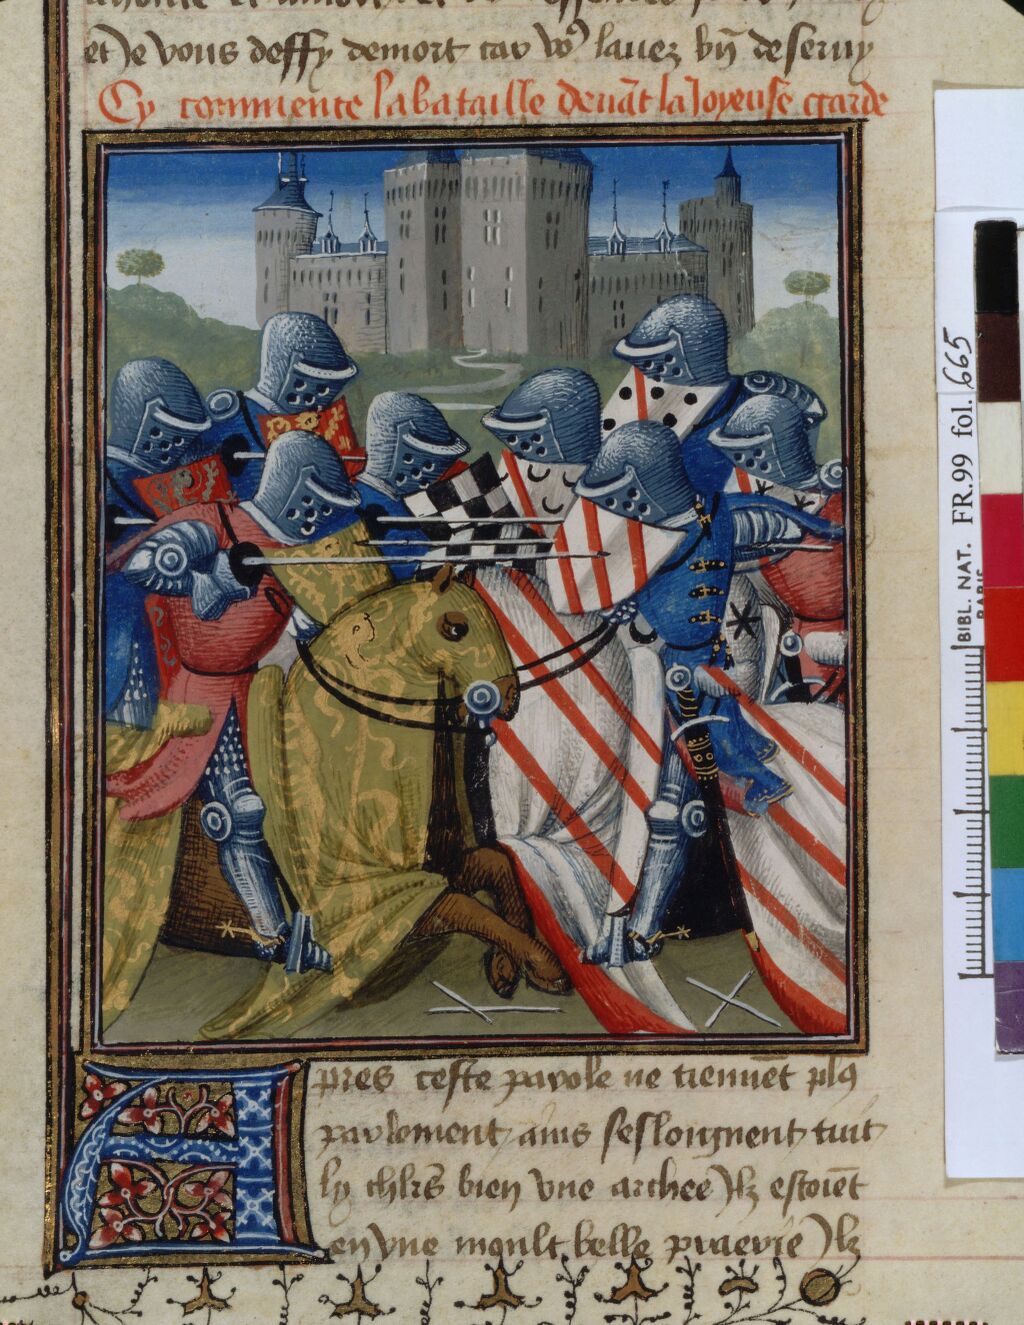 et Je vous deffy de mort car vo9 lauez bn̄ deseruy
Cy commence la bataille deuāt la Joyeuse garde
Apres ceste parole ne tiennēt pl9
parlement ains seslongnent tuit
ly chlrs bien vne archee Jlz estoiēt
en vne moult belle praerie Jlz
BIBL. NAT. FR.99 fol. 665
PARIS